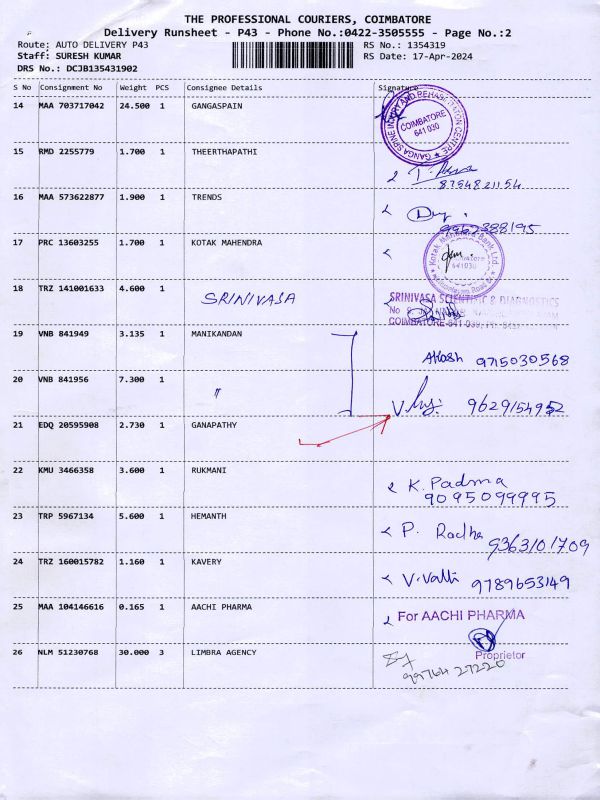 THE PROFESSIONAL COURIERS, COIMBATORE
Delivery Runsheet - P43 - Phone No.:0422-3505555 - Page No.:2
Route: AUTO DELIVERY P43 RS No.: 1354319
Staff: SURESH KUMAR RS Date: 17-Apr-2024
DRS No.: DCJB135431902
S No Consignment No Weight PCS Consignee Details Signature
14 MAA 703717042 24.500 1 GANGASPAIN
COIMBATORE
641 030
15 RMD 2255779 1.700 1 THEERTHAPATHI
8754821154
16 MAA 573622877 1.900 1 TRENDS
9962388195
17 PRC 13603255 1.700 1 KOTAK MAHENDRA
Kotak Mahindra Bank Ltd.
18 TRZ 141001633 4.600 1 SRINIVASA
SRINIVASA SCIENTIFIC & DIAGNOSTICS
COIMBATORE-641 039
19 VNB 841949 3.135 1 MANIKANDAN
Akash 9715030568
20 VNB 841956 7.300 1 "
9629154952
21 EDQ 20595908 2.730 1 GANAPATHY
22 KMU 3466358 3.600 1 RUKMANI
K. Padma
9095099995
23 TRP 5967134 5.600 1 HEMANTH
P. Radha 9363101709
24 TRZ 160015782 1.160 1 KAVERY
V. Valli 9789653149
25 MAA 104146616 0.165 1 AACHI PHARMA
For AACHI PHARMA
Proprietor
26 NLM 51230768 30.000 3 LIMBRA AGENCY
99764 27220